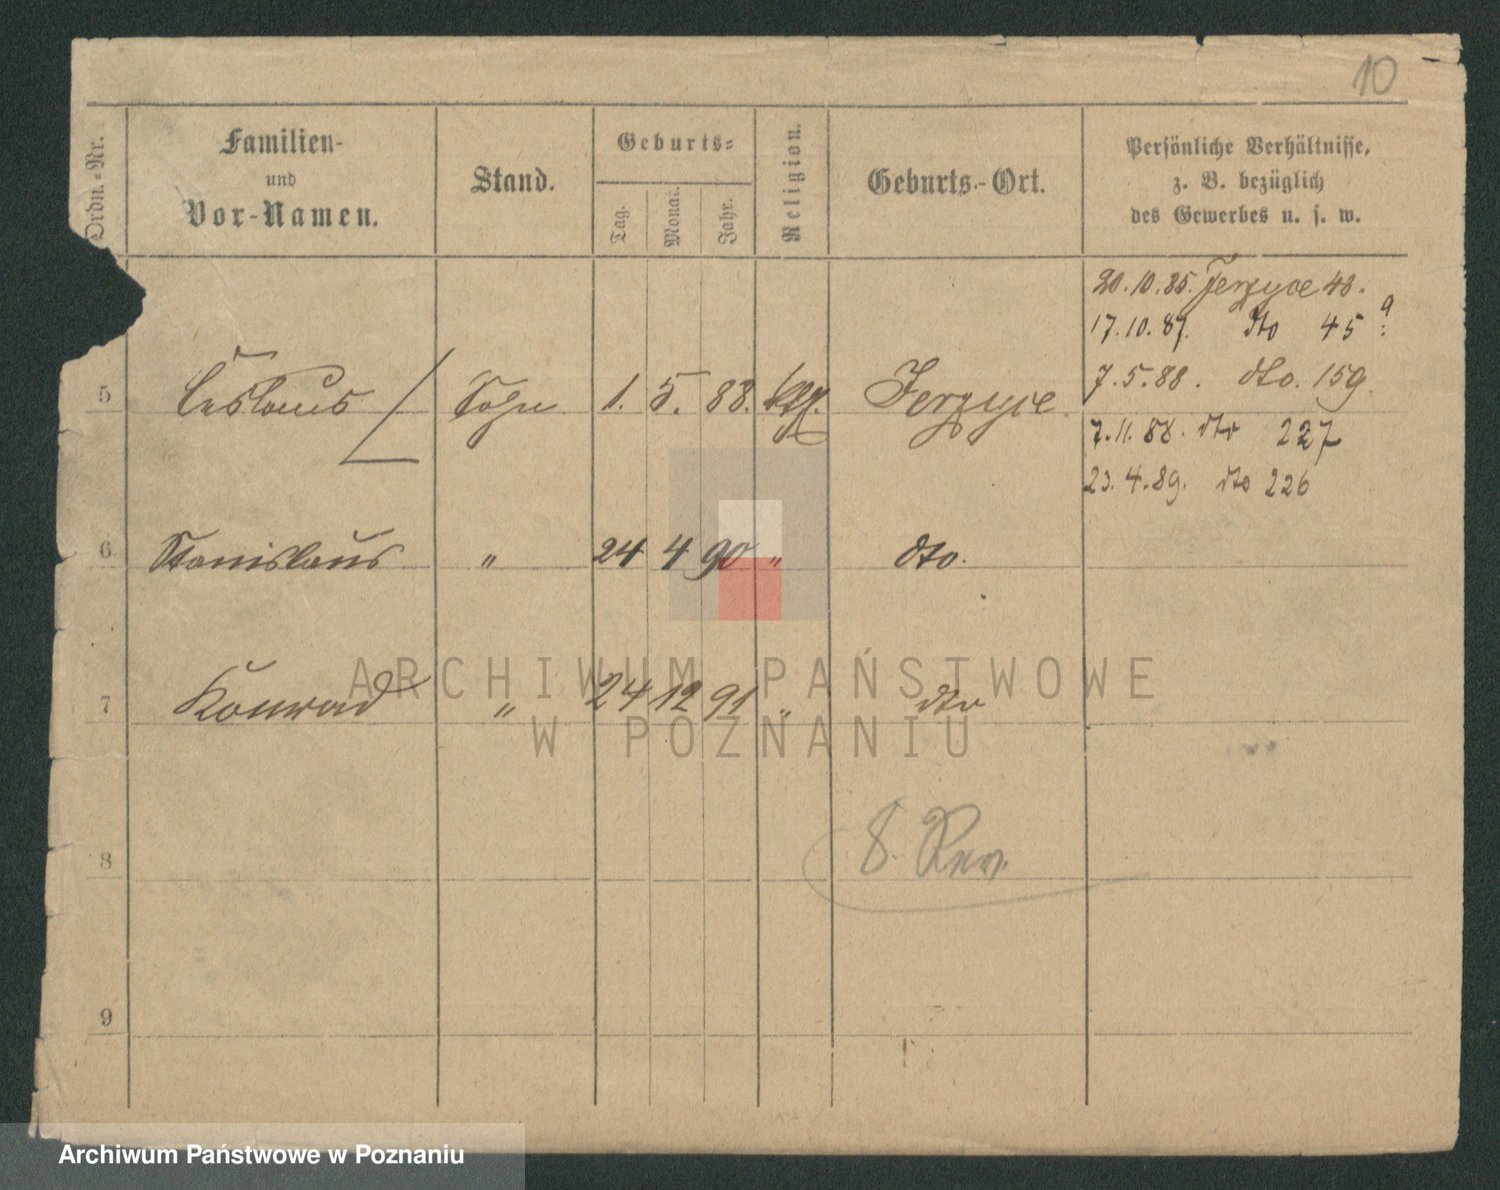 10
Ordn.-Nr.
Familien-
und
Vor-Namen.
Stand.
Geburts-
Tag. Monat. Jahr.
Religion.
Geburts-Ort.
Persönliche Verhältnisse,
z. B. bezüglich
des Gewerbes u. s. w.
20.10.85. Jerzyce 48.
17.10.87. dto 45 a
7.5.88. dto. 159.
5 Ceslaus Sohn 1. 5. 88. kth. Jerzyce
7.11.88. dto 227
23.4.89. dto 226
6 Stanislaus " 24 4 90 " dto.
7 Konrad " 24 12 91 " dto
8
8. Rev.
9
ARCHIWUM PAŃSTWOWE
W POZNANIU
Archiwum Państwowe w Poznaniu